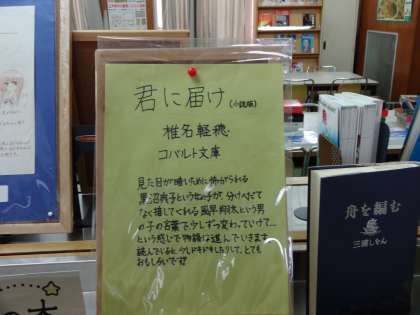 君に届け(小説版)
椎名軽穂
コバルト文庫
見た目が暗いために怖がられる
黒沼爽子という女の子が、分けへだて
なく接してくれる風早翔太という男
の子の言葉で少しずつ変わっていけて…
という感じで物語は進んでいきます。
読んでいると、少しドキドキしたりして、とても
おもしろいです!
舟を編む
三浦しをん
の本